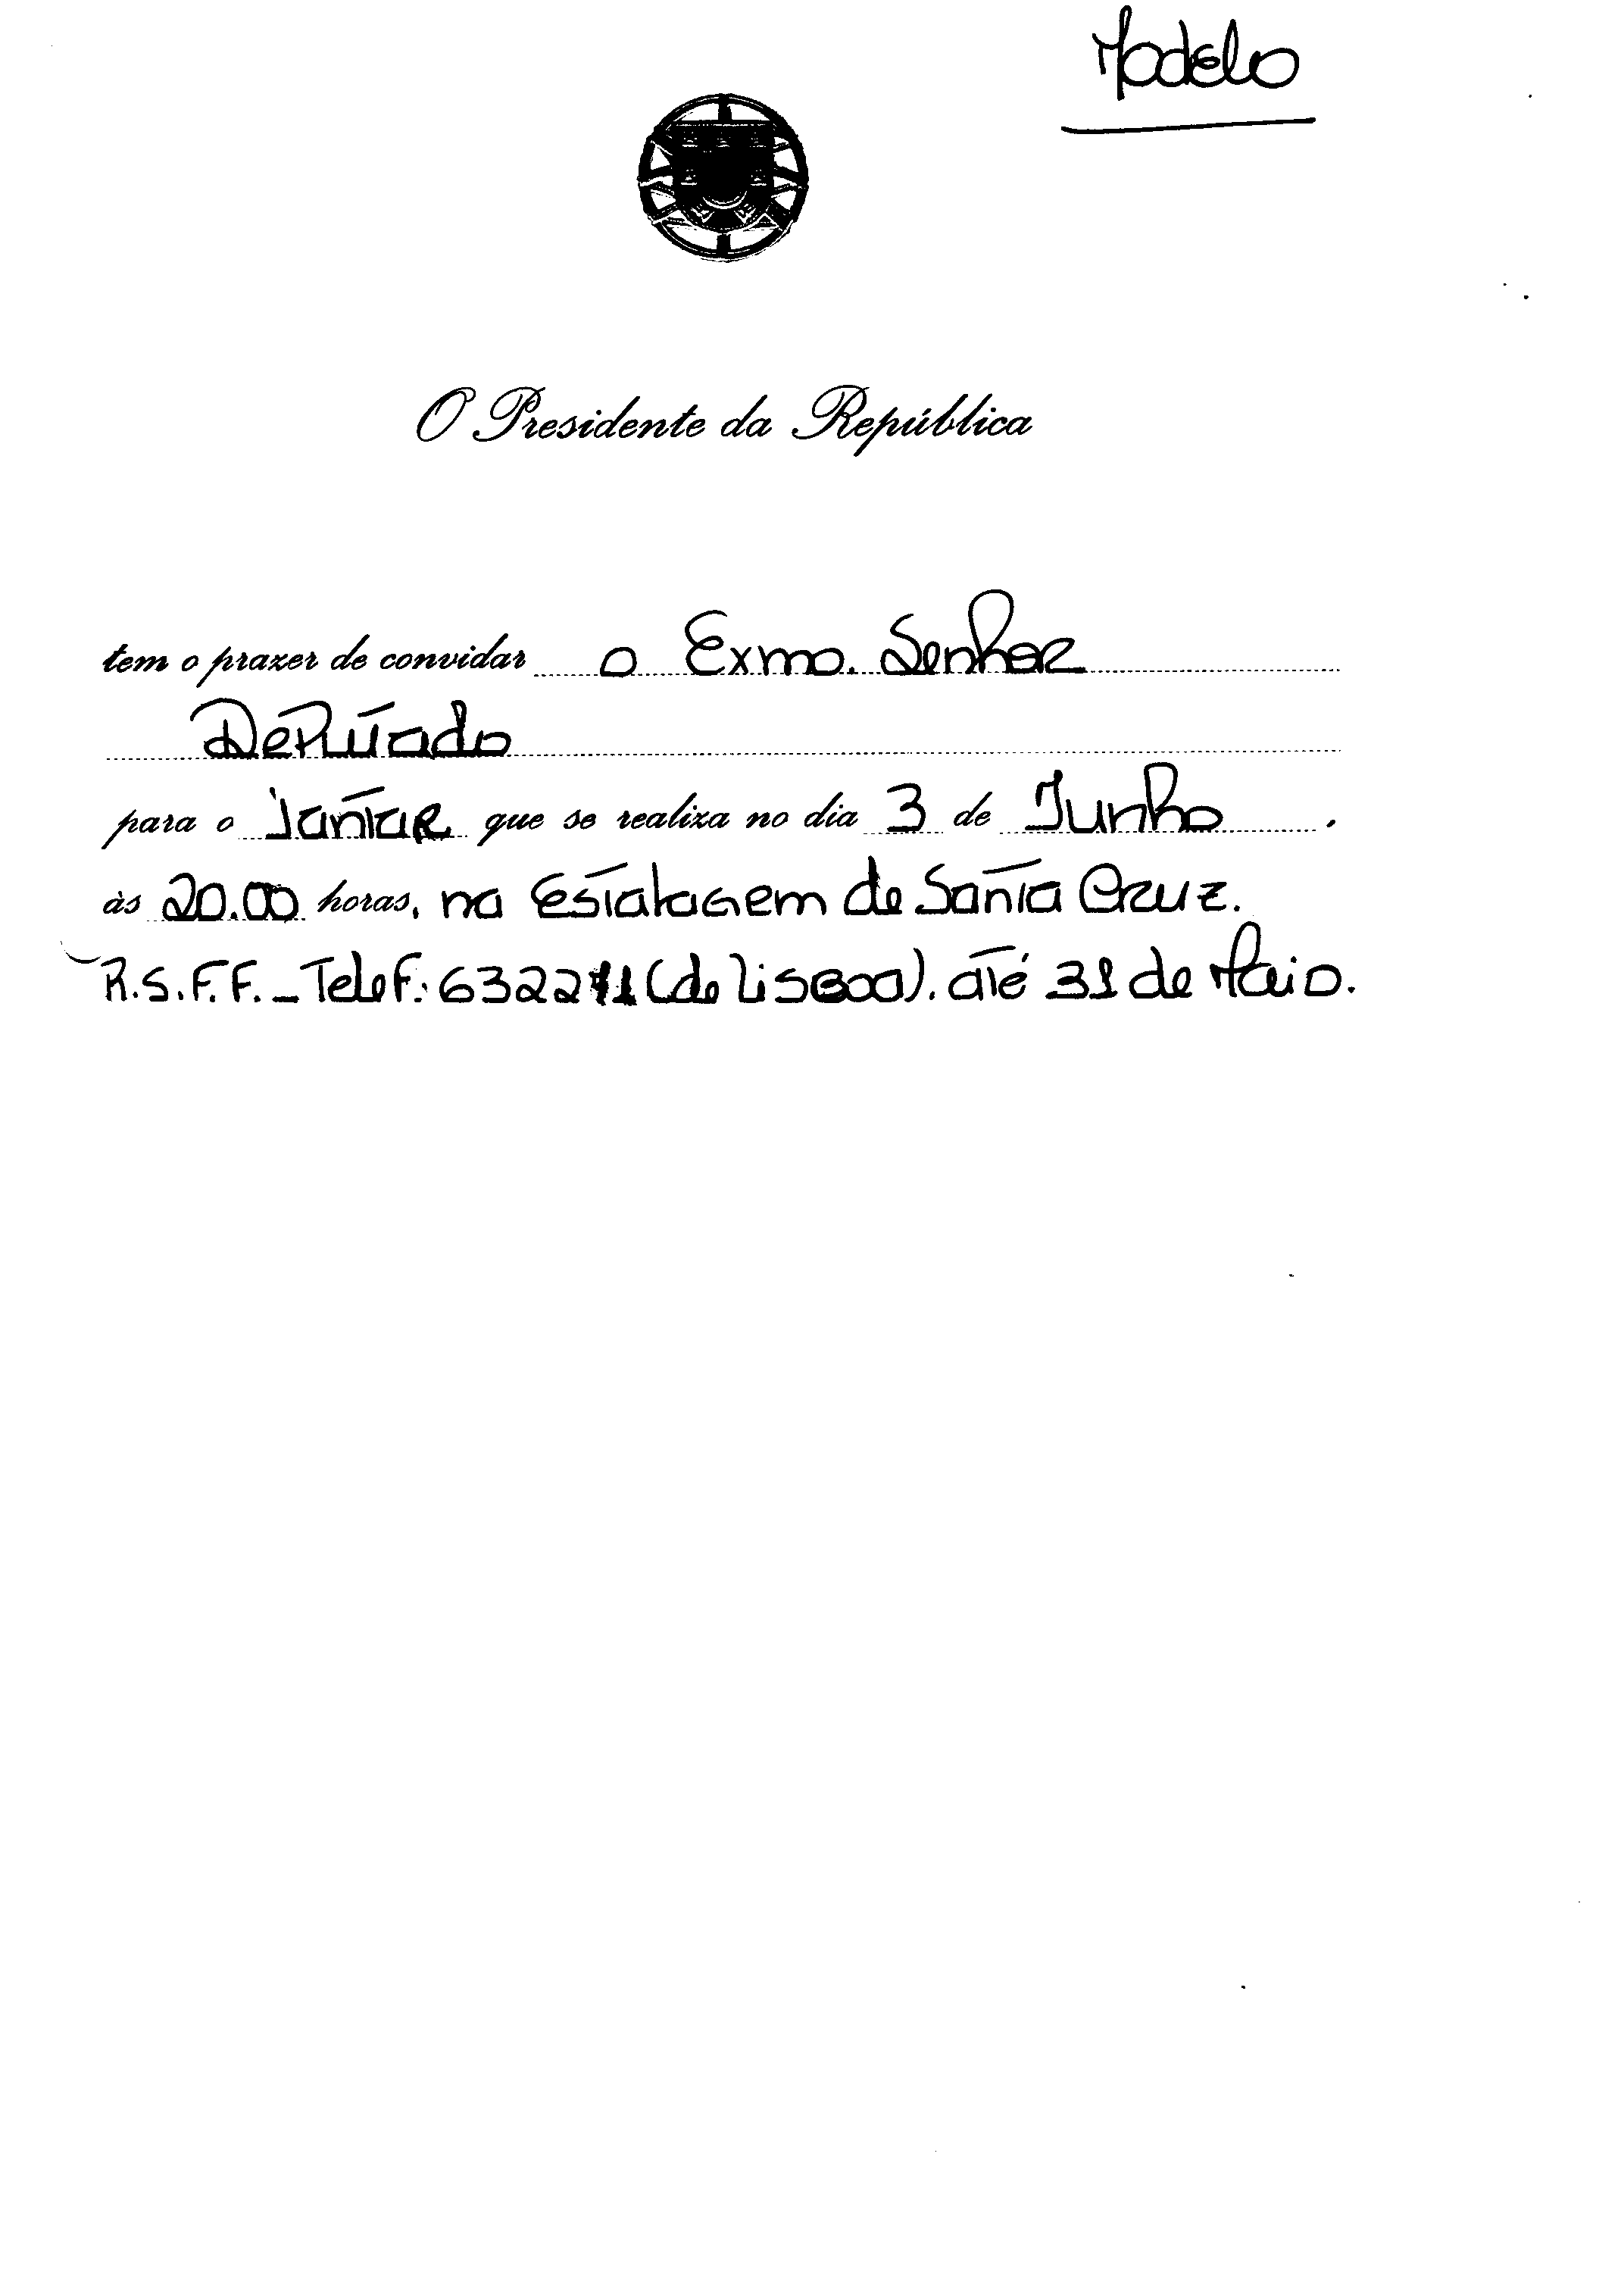 Modelo
O Presidente da República
tem o prazer de convidar o Exmo. Senhor
Deputado
para o Jantar que se realiza no dia 3 de Junho.
às 20.00 horas, na Estalagem de Santa Cruz.
R.S.F.F. - Telef: 632271 (de Lisboa). até 31 de Maio.